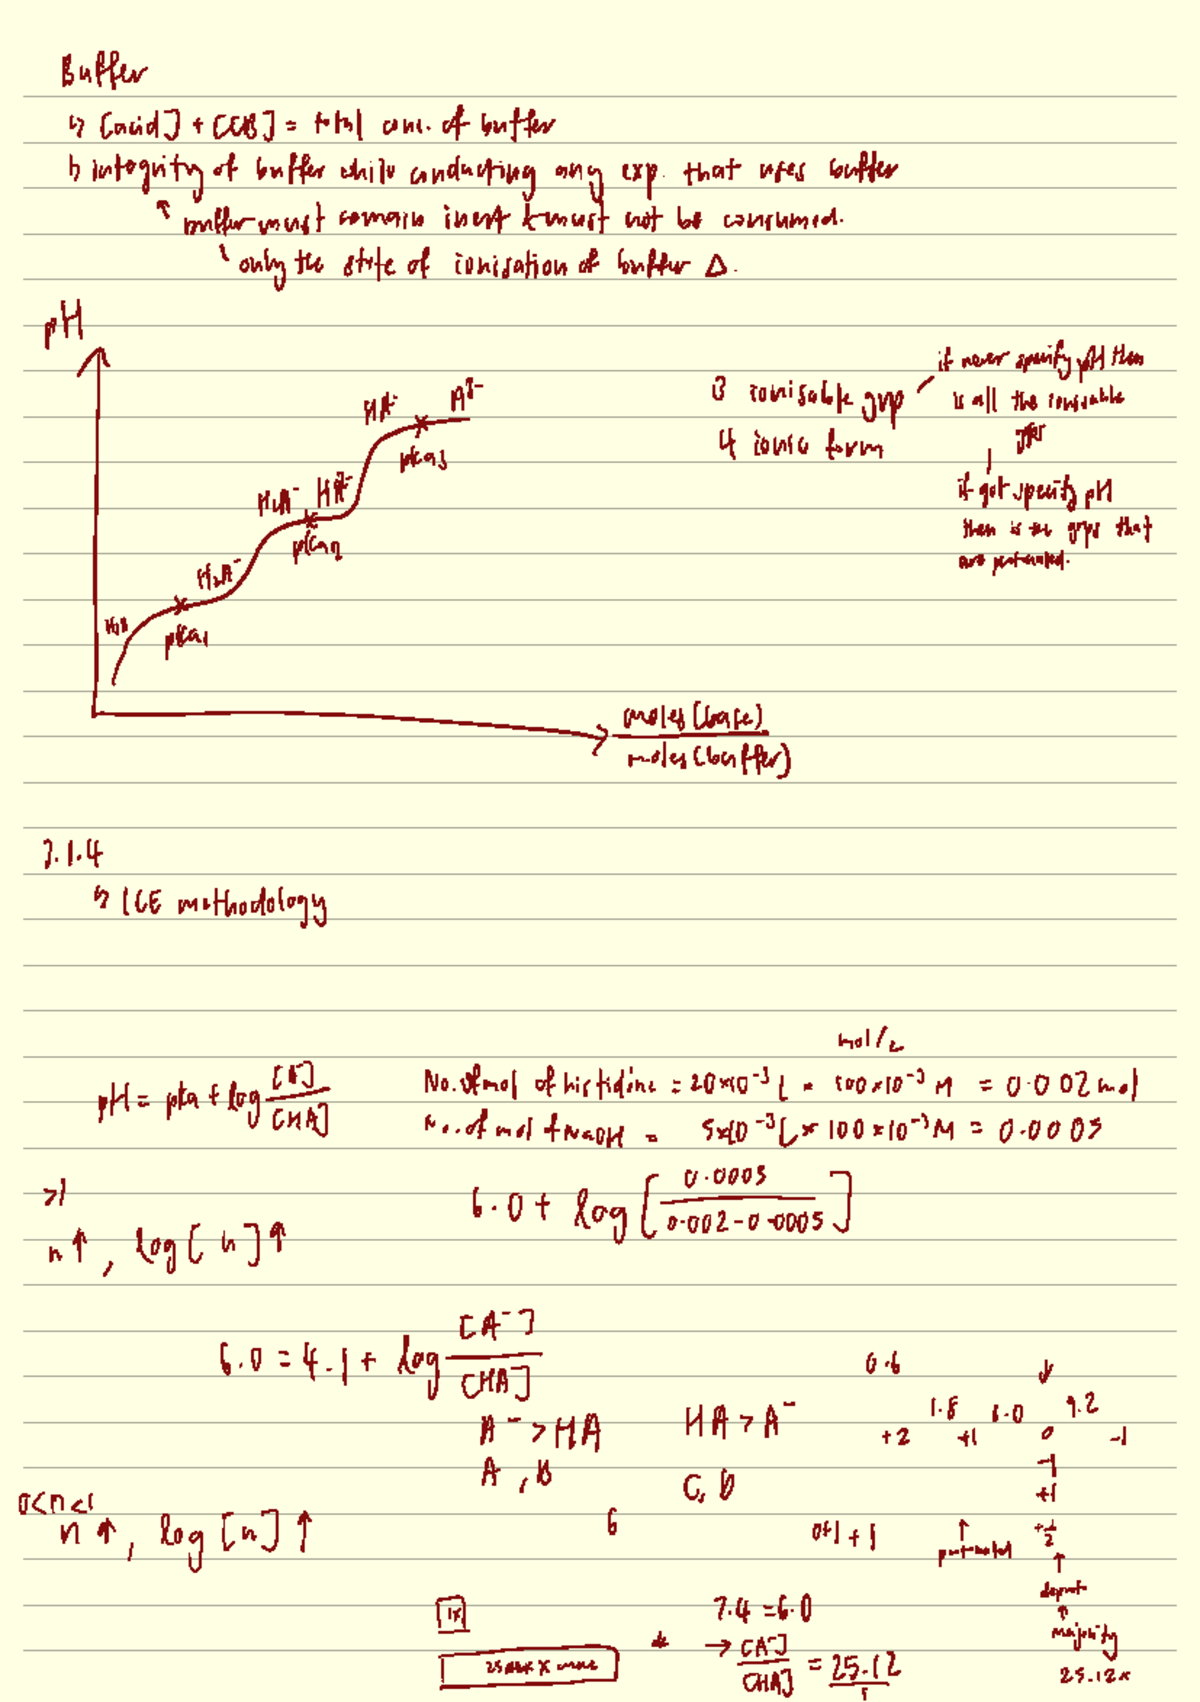 Buffer
↳ [acid] + [CB] = total conc. of buffer
↳ integrity of buffer while conducting any exp. that uses buffer
↑ buffer must remain inert & must not be consumed.
only the state of ionisation of buffer Δ.
pH
H₃A
pKa₁
H₂A⁻
H₂A⁻
HA²⁻
pKa₂
HA²⁻
A³⁻
pKa₃
moles (base)
moles (buffer)
3 ionisable grp
4 ionic form
if never specify pH then
is all the ionisable
if got specify pH
then is the grps that
are protonated.
3.1.4
↳ ICE methodology
pH = pka + log [A⁻]/[HA]
mol/L
No. of mol of histidine = 20×10⁻³ L × 100×10⁻³ M = 0.002 mol
No. of mol of NaOH = 5×10⁻³ L × 100×10⁻³ M = 0.0005
6.0 + log [0.0005/0.002-0.0005]
>1
n ↑, log [n] ↑
6.0 = 4.1 + log [A⁻]/[HA]
A⁻ > HA
HA > A⁻
A, B
C, D
0.6 ↓
1.8 6.0 9.2
+2 +1 0 -1
-1
+1
+½
0<n<1
n ↑, log [n] ↑
6
0+1+1
↑
protonated
↑
deprot
↑
majority
25.12x
1x
7.4 = 6.0
* → [A⁻]/[HA] = 25.12/1